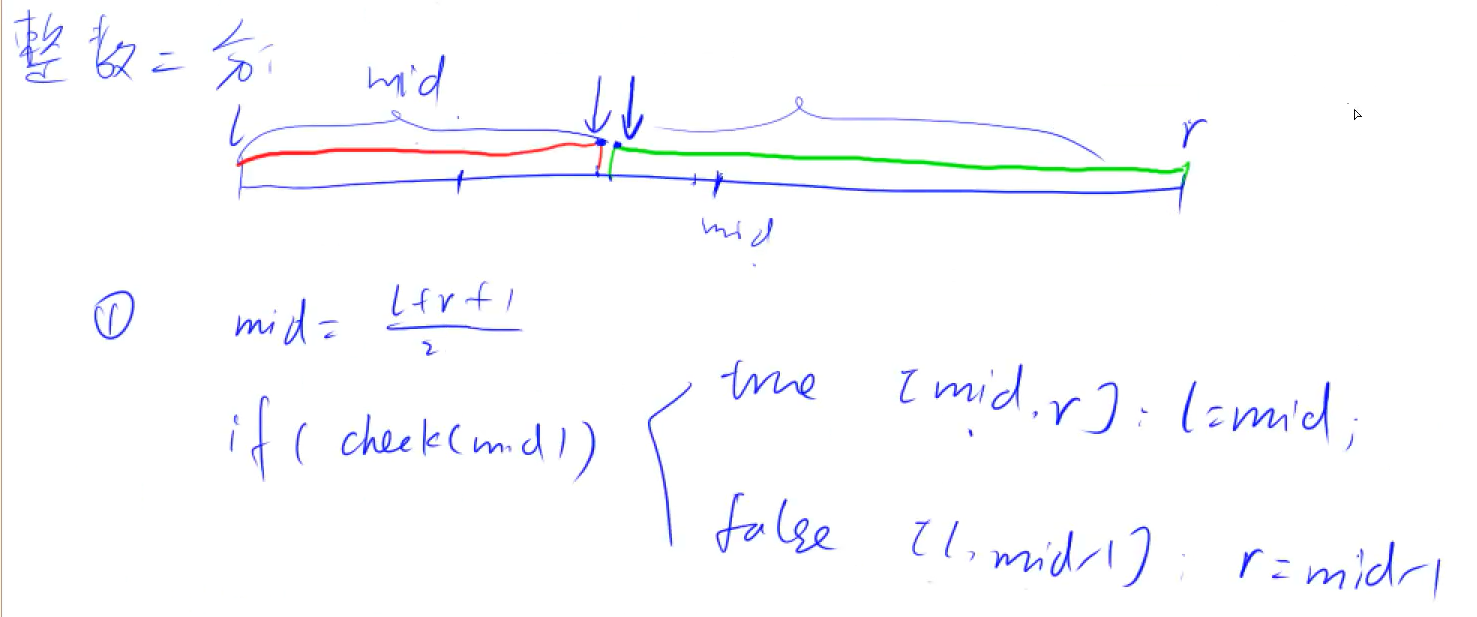 整数二分
mid
l
r
mid
① mid = (l+r+1)/2
if( check(mid))
true [mid, r]: l=mid;
false [l, mid-1]: r=mid-1